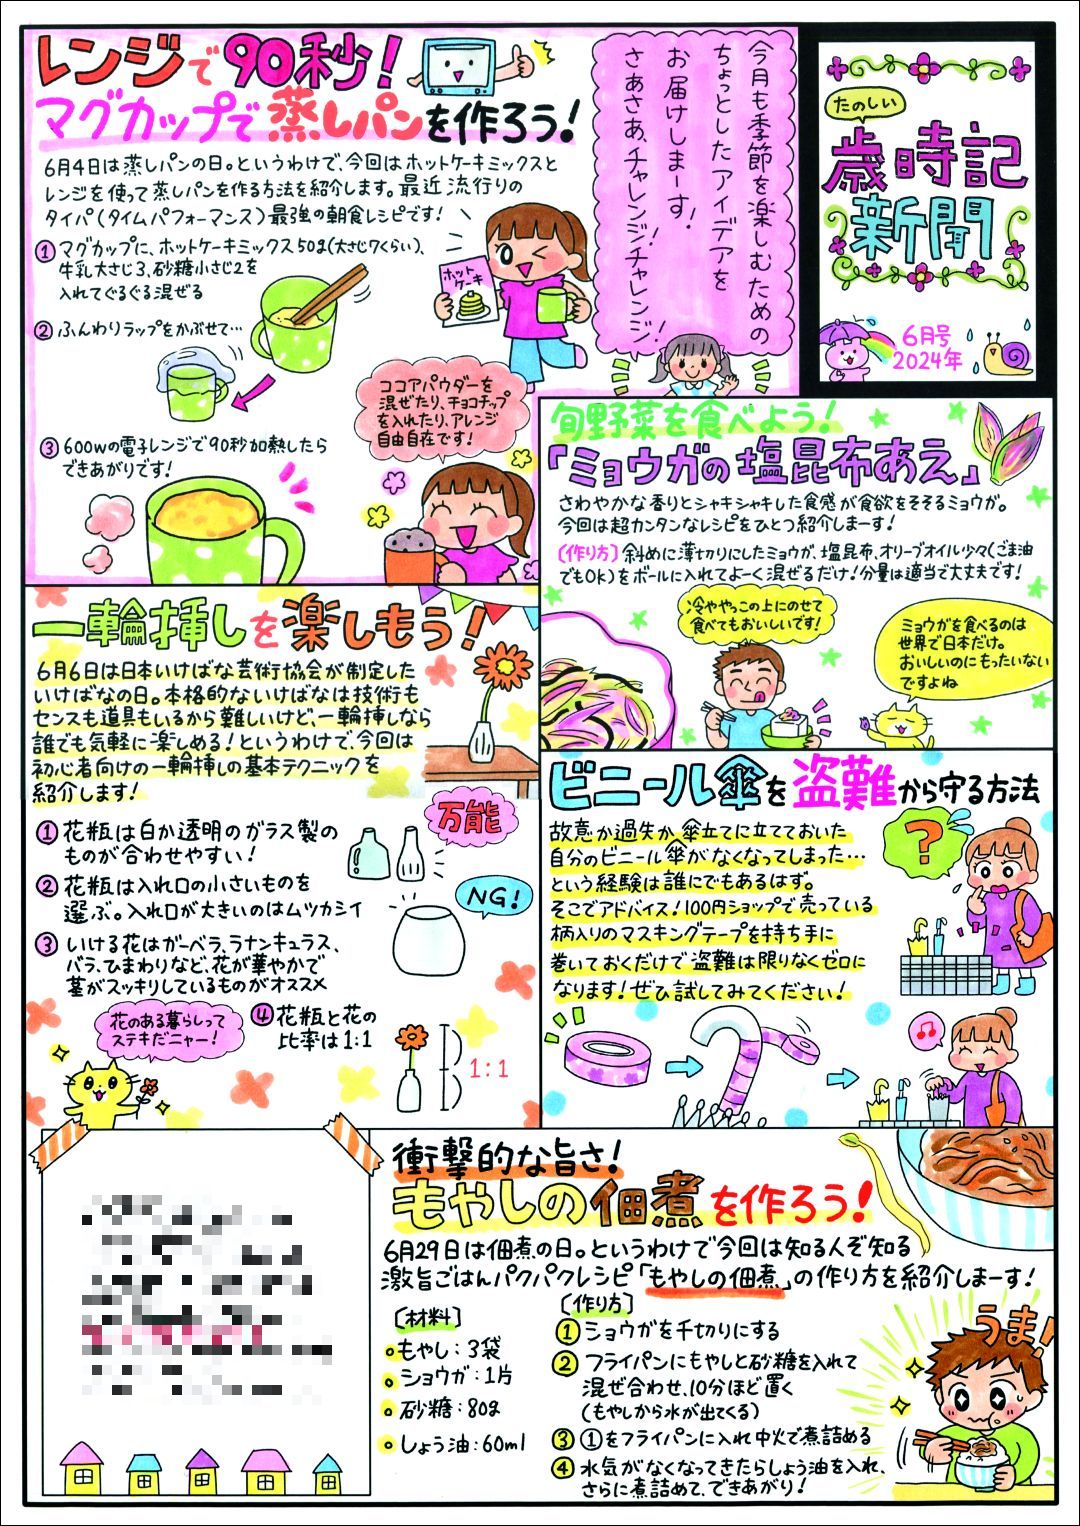 たのしい
歳時記
新聞
6月号
2024年
今月も季節を楽しむための
ちょっとしたアイデアを
お届けしまーす!
さあさあ、チャレンジ!チャレンジ!
レンジで90秒!
マグカップで蒸しパンを作ろう!
6月4日は蒸しパンの日。というわけで、今回はホットケーキミックスと
レンジを使って蒸しパンを作る方法を紹介します。最近流行りの
タイパ(タイムパフォーマンス)最強の朝食レシピです!
① マグカップに、ホットケーキミックス50g(大さじ7くらい)、
牛乳大さじ3、砂糖小さじ2を
入れてぐるぐる混ぜる
ホット
ケーキ
② ふんわりラップをかぶせて…
③ 600wの電子レンジで90秒加熱したら
できあがりです!
ココアパウダーを
混ぜたり、チョコチップ
を入れたり、アレンジ
自由自在です!
旬野菜を食べよう!
「ミョウガの塩昆布あえ」
さわやかな香りとシャキシャキした食感が食欲をそそるミョウガ。
今回は超カンタンなレシピをひとつ紹介しまーす!
〔作り方〕斜めに薄切りにしたミョウガ、塩昆布、オリーブオイル少々(ごま油
でもOk)をボールに入れてよーく混ぜるだけ!分量は適当で大丈夫です!
冷ややっこの上にのせて
食べてもおいしいです!
ミョウガを食べるのは
世界で日本だけ。
おいしいのにもったいない
ですよね
一輪挿しを楽しもう!
6月6日は日本いけばな芸術協会が制定した
いけばなの日。本格的ないけばなは技術も
センスも道具もいるから難しいけど、一輪挿しなら
誰でも気軽に楽しめる!というわけで、今回は
初心者向けの一輪挿しの基本テクニックを
紹介します!
① 花瓶は白か透明のガラス製の
ものが合わせやすい!
万能
② 花瓶は入れ口の小さいものを
選ぶ。入れ口が大きいのはムツカシイ
NG!
③ いける花はガーベラ、ラナンキュラス、
バラ、ひまわりなど、花が華やかで
茎がスッキリしているものがオススメ
④ 花瓶と花の
比率は1:1
1:1
花のある暮らしって
ステキだニャー!
ビニール傘を盗難から守る方法
故意か過失か、傘立てに立てておいた
自分のビニール傘がなくなってしまった…
という経験は誰にでもあるはず。
そこでアドバイス!100円ショップで売っている
柄入りのマスキングテープを持ち手に
巻いておくだけで盗難は限りなくゼロに
なります!ぜひ試してみてください!
?
衝撃的な旨さ!
もやしの佃煮を作ろう!
6月29日は佃煮の日。というわけで今回は知る人ぞ知る
激旨ごはんパクパクレシピ「もやしの佃煮」の作り方を紹介しまーす!
〔材料〕
もやし:3袋
ショウガ:1片
砂糖:80g
しょう油:60ml
〔作り方〕
① ショウガを千切りにする
② フライパンにもやしと砂糖を入れて
混ぜ合わせ、10分ほど置く
(もやしから水が出てくる)
③ ①をフライパンに入れ中火で煮詰める
④ 水気がなくなってきたらしょう油を入れ、
さらに煮詰めて、できあがり!
うま!